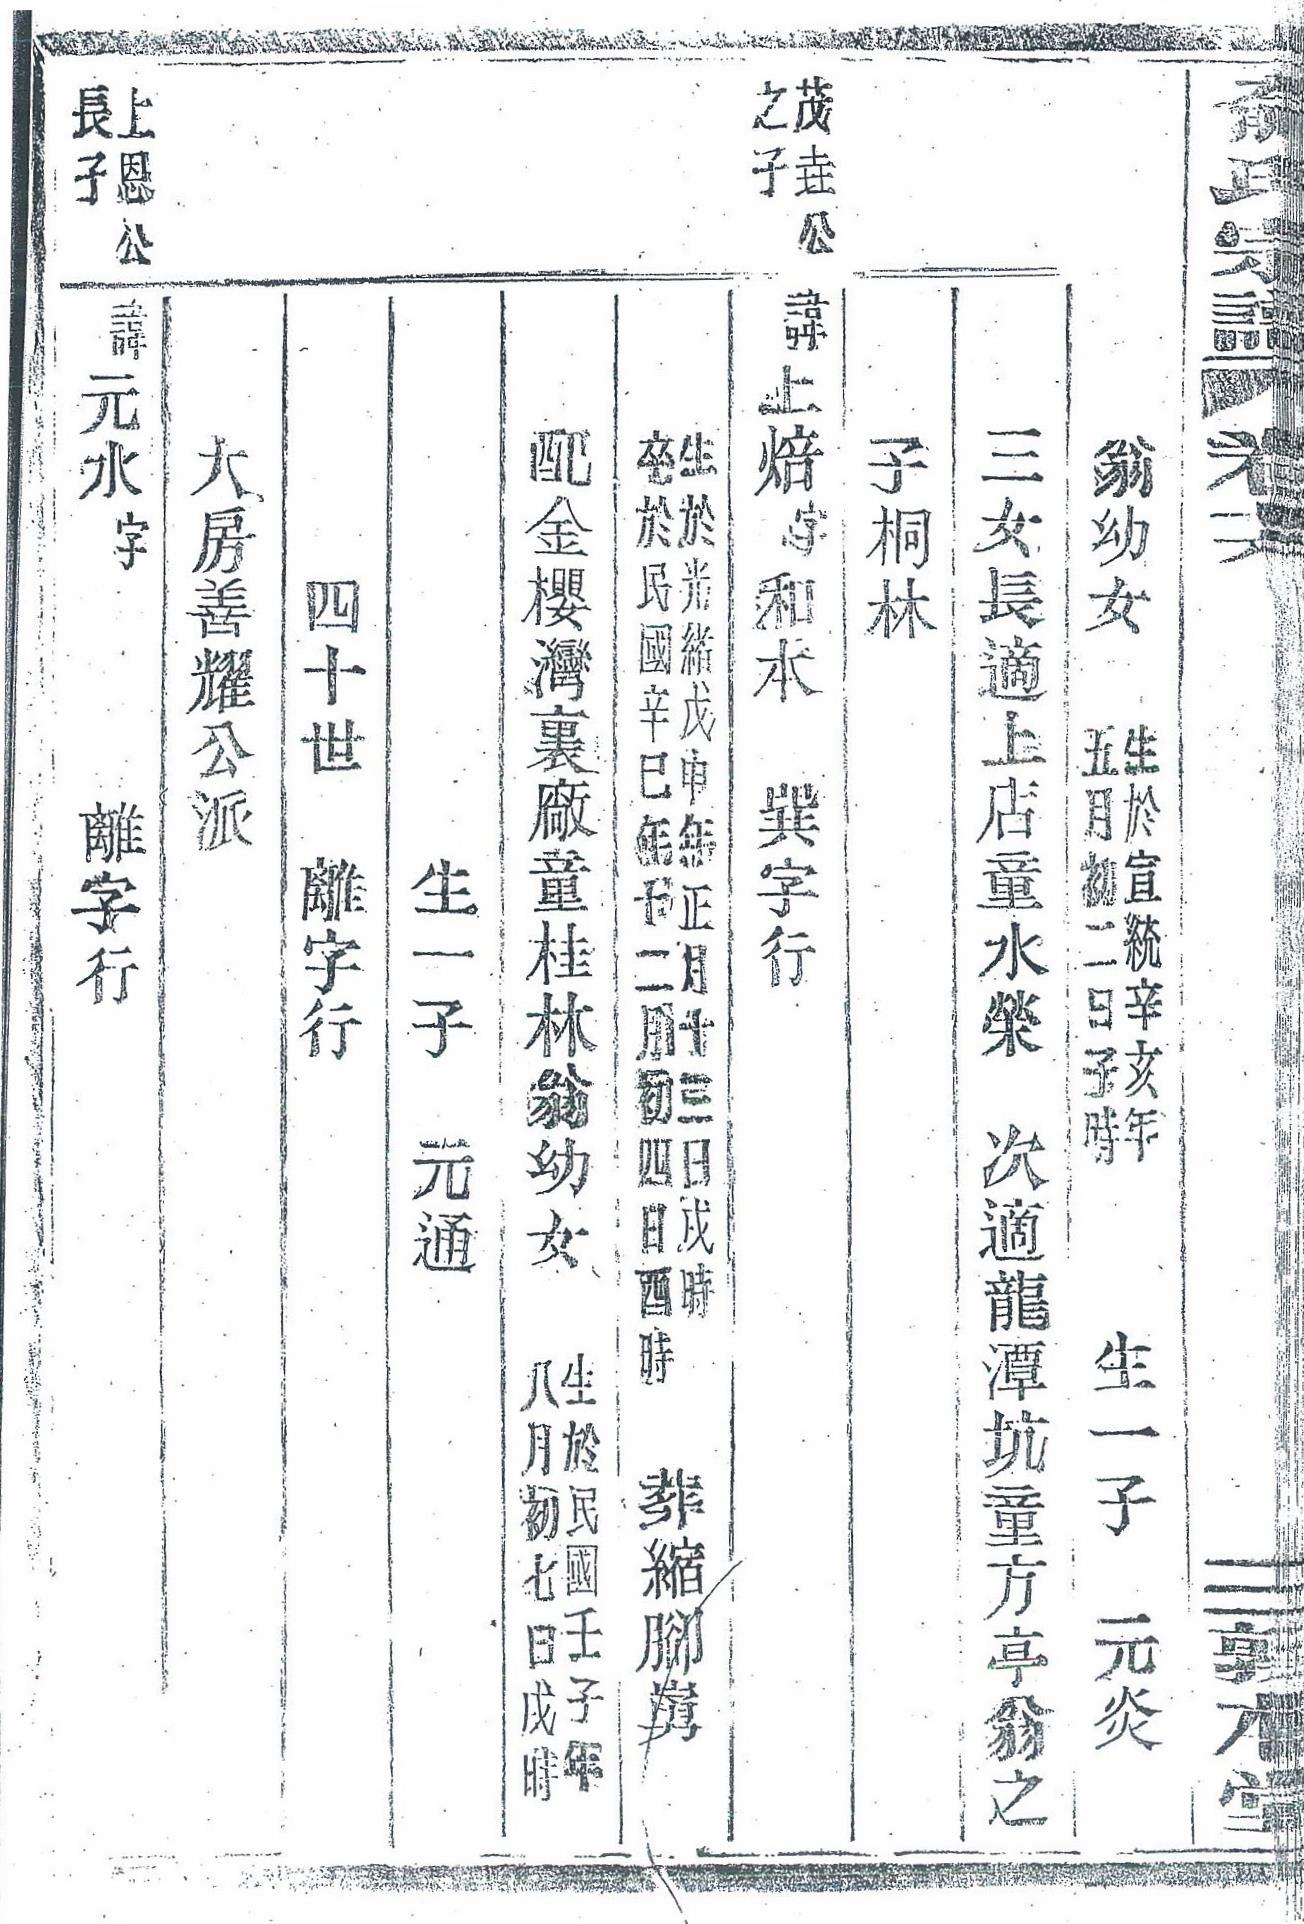 氏宗譜 卷六 敦本堂
翁幼女 生於宣統辛亥年 五月初二日子時 生一子 元炎
三女長適上店童水榮 次適龍潭坑童方亭翁之
子桐林
茂圭公之子
諱上焙字和水 巽字行
生於光緒戊申年正月十三日戌時
卒於民國辛巳年十二月初四日酉時 葬縮腳灣
配金櫻灣裏廠童桂林翁幼女 生於民國壬子年 八月初七日戌時
生一子 元通
四十世 離字行
大房善耀公派
上恩公長子
諱元水字 離字行